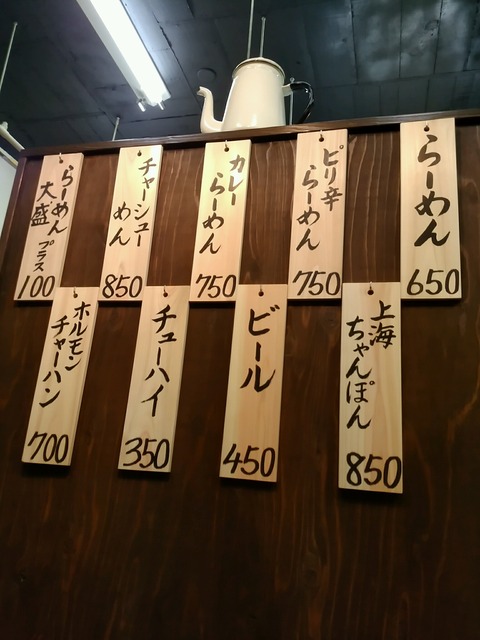 らーめん
650
ピリ辛
らーめん
750
カレー
らーめん
750
チャーシュー
めん
850
らーめん
大盛
プラス
100
上海
ちゃんぽん
850
ビール
450
チューハイ
350
ホルモン
チャーハン
700